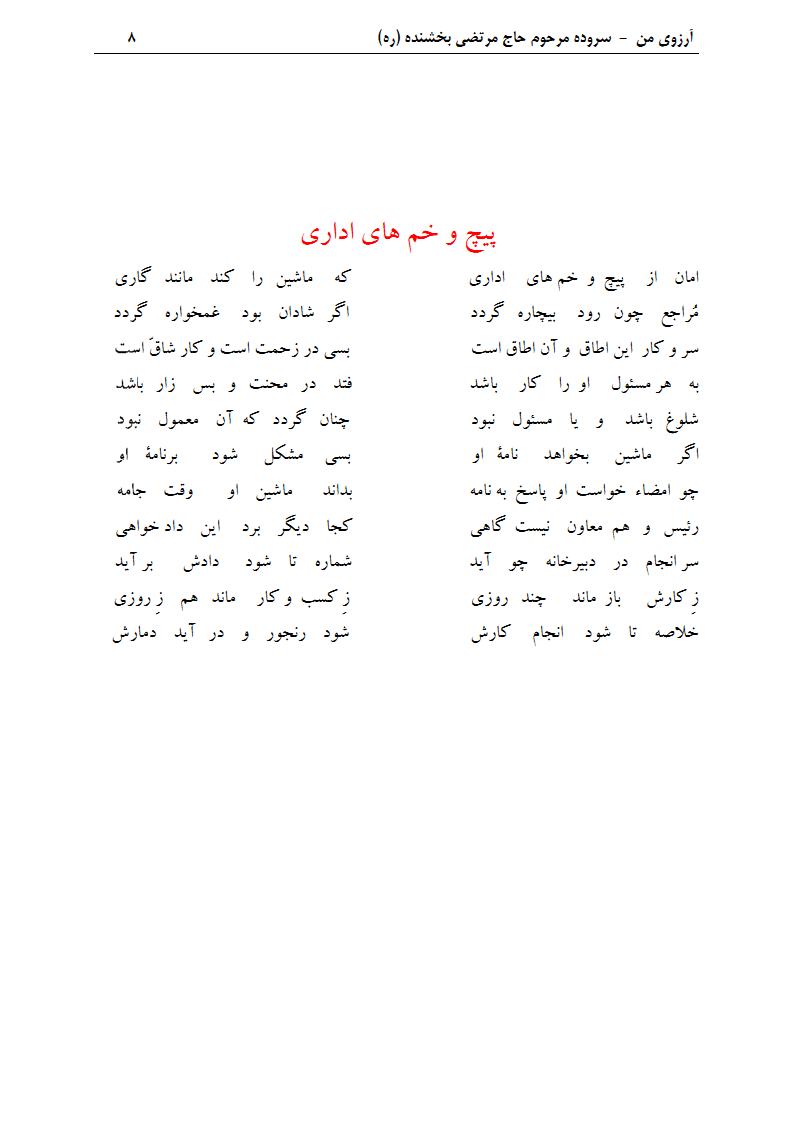 آرزوی من - سروده مرحوم حاج مرتضی بخشنده (ره) ۸
پیچ و خم های اداری
امان از پیچ و خم های اداری که ماشین را کند مانند گاری
مُراجع چون رود بیچاره گردد اگر شادان بود غمخواره گردد
سر و کار این اطاق و آن اطاق است بسی در زحمت است و کار شاقّ است
به هر مسئول او را کار باشد فتد در محنت و بس زار باشد
شلوغ باشد و یا مسئول نبود چنان گردد که آن معمول نبود
اگر ماشین بخواهد نامهٔ او بسی مشکل شود برنامهٔ او
چو امضاء خواست او پاسخ به نامه بداند ماشین او وقت جامه
رئیس و هم معاون نیست گاهی کجا دیگر برد این داد خواهی
سر انجام در دبیرخانه چو آید شماره تا شود دادش بر آید
زِ کارش باز ماند چند روزی زِ کسب و کار ماند هم زِ روزی
خلاصه تا شود انجام کارش شود رنجور و در آید دمارش